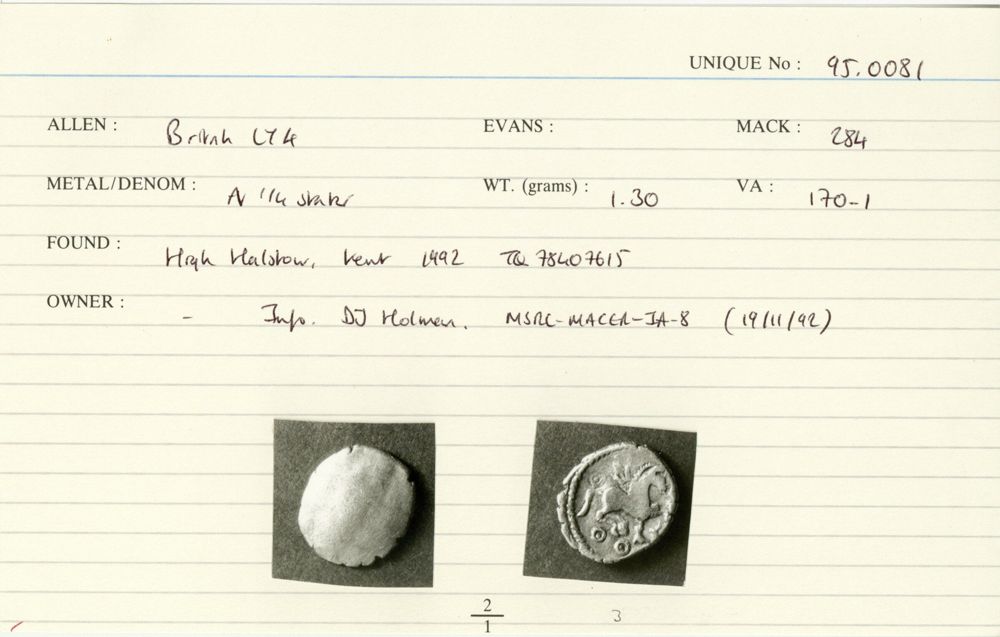 UNIQUE No : 95.0081
ALLEN : British LY4 EVANS : MACK : 284
METAL/DENOM : N 1/4 stater WT. (grams) : 1.30 VA : 170-1
FOUND : High Halstow, Kent 1992 TQ 78407615
OWNER : - Info. DJ Holman. MSRC-MACER-IA-8 (19/11/92)
2/1 3